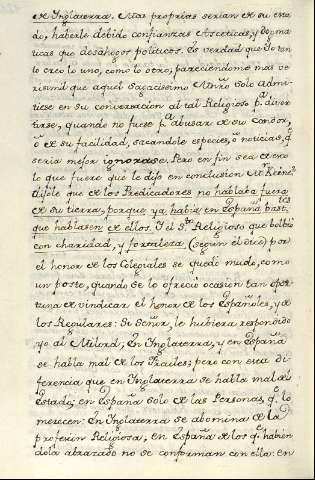 de Inglaterra. Mas proprias serian de su esta-
do, haberle debido confianzas Asceticas, y dogma-
ticas que desahogos politicos. Es verdad que Io tan-
to creo lo uno, como lo otro; pareciendome mas ve-
risimil que aquel Sagacissimo Anro solo admi-
tiese en su conversacion al tal Religioso pa. diver-
tirse, quando no fuese pa. abusar de su Candor,
ò de su facilidad, sacandole especies, ò noticias, q.e
seria mejor ignorase. Pero en fin sea de ero
lo que fuere que le dijo en conclusion
dijole que de los Predicadores no hablaba fuera
de su tierra, porque ya habia en España bast.tes
que hablasen de ellos. I el S.to Religioso que bolbió
con charidad, y fortaleza (según el dice) por
el honor de los Colegiales se quedó mudo, como
un poste, quando se le ofrecio ocasion tan opor-
tuna de vindicar el honor de los Españoles, y de
los Regulares: Si Señor, le hubiera respondido
yo al Milord, En Inglaterra, y en España
se habla mal de los Frailes; pero con esta di-
ferencia que en Inglaterra se habla mal del
Estado; en España solo de las Personas, q.e lo
merecen: En Inglaterra se abomina de la
profesion Religiosa; en España de los q.e habien-
dola abrazado no se conforman con ella: en